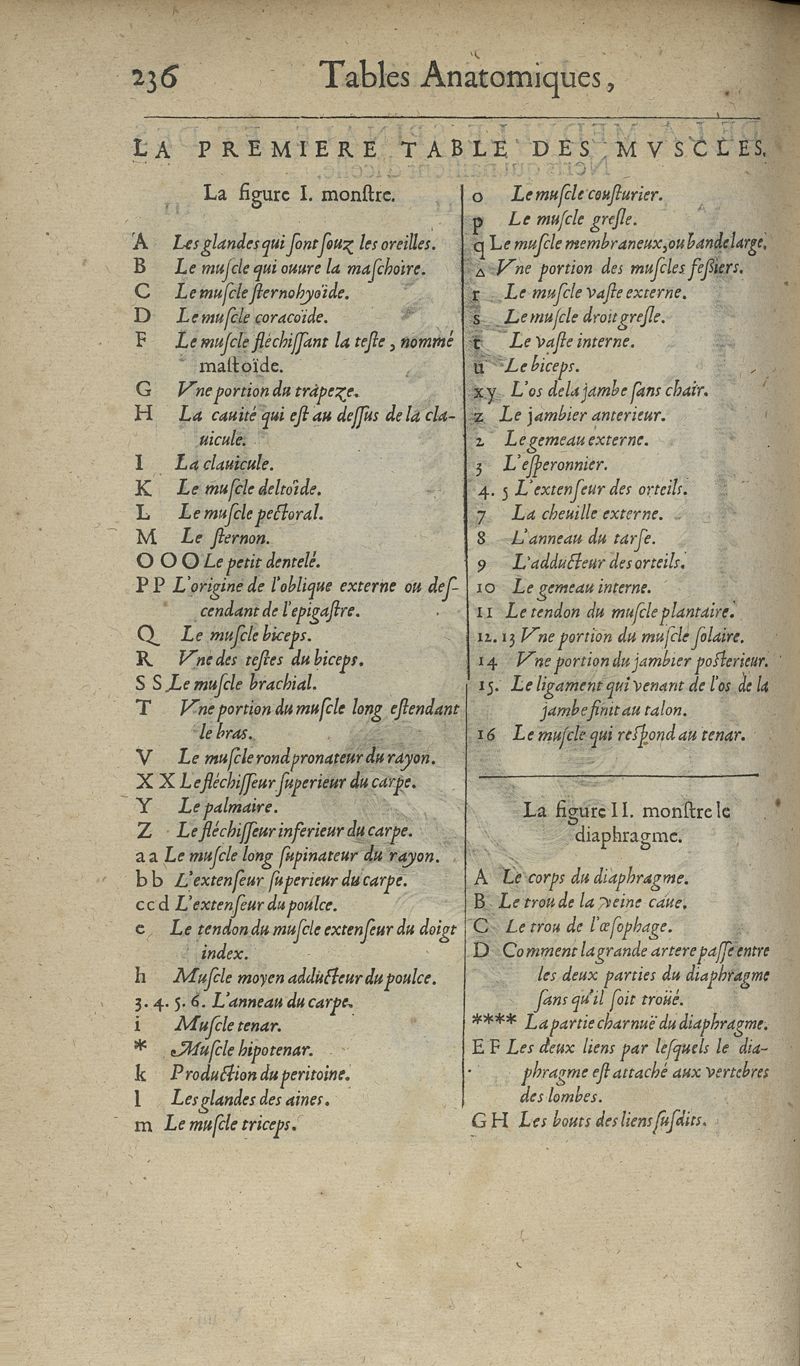 236 Tables Anatomiques,
LA PREMIERE TABLE DES MVSCLES.
La figure I. monſtre.
A Les glandes qui ſont ſouz les oreilles.
B Le muſcle qui ouure la maſchoire.
C Le muſcle ſternohyoïde.
D Le muſcle coracoïde.
F Le muſcle fléchiſſant la teſte, nommé
maſtoïde.
G Vne portion du trapeze.
H La cauité qui eſt au deſſus de la cla-
uicule.
I La clauicule.
K Le muſcle deltoïde.
L Le muſcle pectoral.
M Le ſternon.
O O O Le petit dentelé.
P P L'origine de l'oblique externe ou deſ-
cendant de l'epigaſtre.
Q Le muſcle biceps.
R Vne des teſtes du biceps.
S S Le muſcle brachial.
T Vne portion du muſcle long eſtendant
le bras.
V Le muſcle rond pronateur du rayon.
X X Le fléchiſſeur ſuperieur du carpe.
Y Le palmaire.
Z Le fléchiſſeur inferieur du carpe.
a a Le muſcle long ſupinateur du rayon.
b b L'extenſeur ſuperieur du carpe.
c c d L'extenſeur du poulce.
e Le tendon du muſcle extenſeur du doigt
index.
h Muſcle moyen adducteur du poulce.
3. 4. 5. 6. L'anneau du carpe.
i Muſcle tenar.
* Muſcle hipotenar.
k Production du peritoine.
l Les glandes des aines.
m Le muſcle triceps.
o Le muſcle couſturier.
p Le muſcle greſle.
q Le muſcle membraneux, ou bande large.
△ Vne portion des muſcles feſſiers.
r Le muſcle vaſte externe.
s Le muſcle droit greſle.
t Le vaſte interne.
u Le biceps.
x y L'os de la jambe ſans chair.
z Le jambier anterieur.
2 Le gemeau externe.
3 L'eſperonnier.
4. 5 L'extenſeur des orteils.
7 La cheuille externe.
8 L'anneau du tarſe.
9 L'adducteur des orteils.
10 Le gemeau interne.
11 Le tendon du muſcle plantaire.
12. 13 Vne portion du muſcle ſolaire.
14 Vne portion du jambier poſterieur.
15. Le ligament qui venant de l'os de la
jambe finit au talon.
16 Le muſcle qui reſpond au tenar.
La figure II. monſtre le
diaphragme.
A Le corps du diaphragme.
B Le trou de la veine caue.
C Le trou de l'œſophage.
D Comment la grande artere paſſe entre
les deux parties du diaphragme
ſans qu'il ſoit troüé.
**** La partie charnuë du diaphragme.
E F Les deux liens par leſquels le dia-
phragme eſt attaché aux vertebres
des lombes.
G H Les bouts des liens ſuſdits.